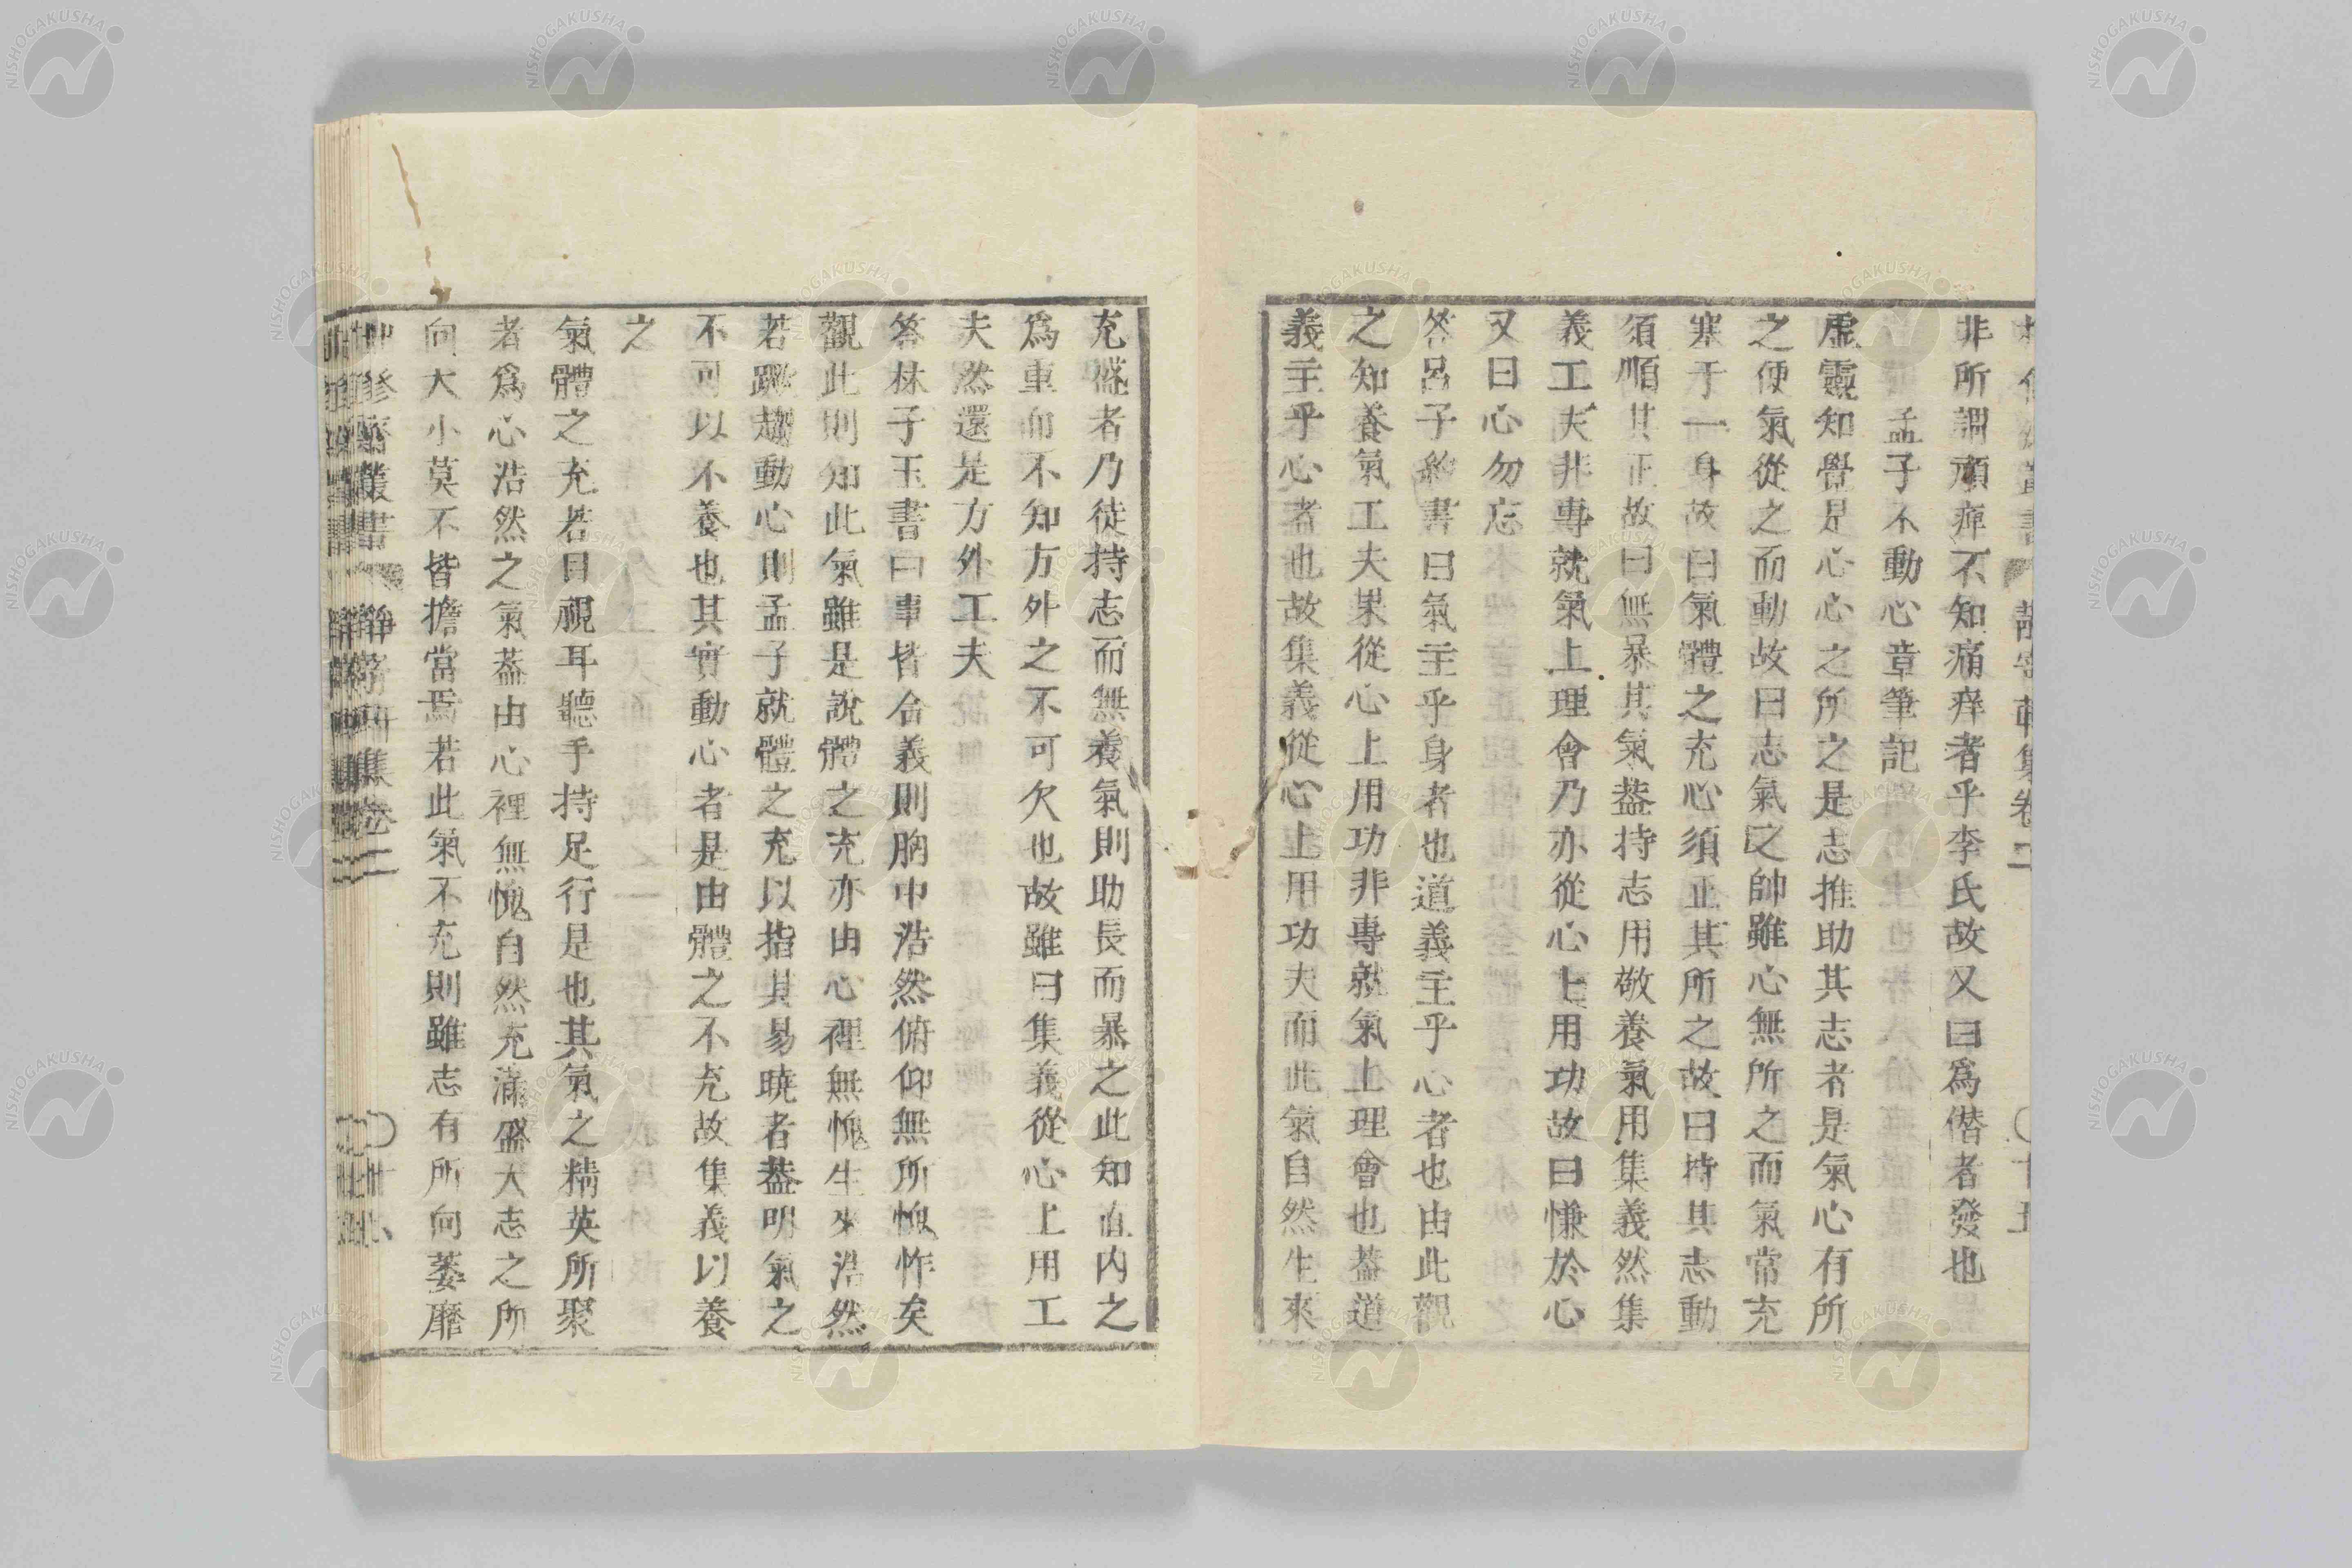 非所謂頑痺不知痛痒者乎李氏故又曰爲偕者發也
孟子不動心章筆記
虛靈知覺是心心之所之是志推助其志者是氣心有所
之便氣從之而動故曰志氣之帥雖心無所之而氣常充
塞于一身故曰氣體之充心須正其所之故曰持其志動
須順其正故曰無暴其氣葢持志用敬養氣用集義然集
義工夫非專就氣上理會乃亦從心上用功故曰慊於心
又曰心勿忘
答呂子約書曰氣主乎身者也道義主乎心者也由此觀
之知養氣工夫果從心上用功非專就氣上理會也葢道
義主乎心者也故集義從心上用功夫而此氣自然生來
充盛者乃徒持志而無養氣則助長而暴之此知直内之
爲重而不知方外之不可欠也故雖曰集義從心上用工
夫然還是方外工夫
答林子玉書曰事皆合義則胸中浩然俯仰無所愧怍矣
觀此則知此氣雖是說體之充亦由心裡無愧生來浩然
若蹶趨動心則孟子就體之充以指其易曉者葢明氣之
不可以不養也其實動心者是由體之不充故集義以養
之
氣體之充若目視耳聽手持足行是也其氣之精英所聚
者爲心浩然之氣葢由心裡無愧自然充滿盛大志之所
向大小莫不皆擔當焉若此氣不充則雖志有所向萎靡